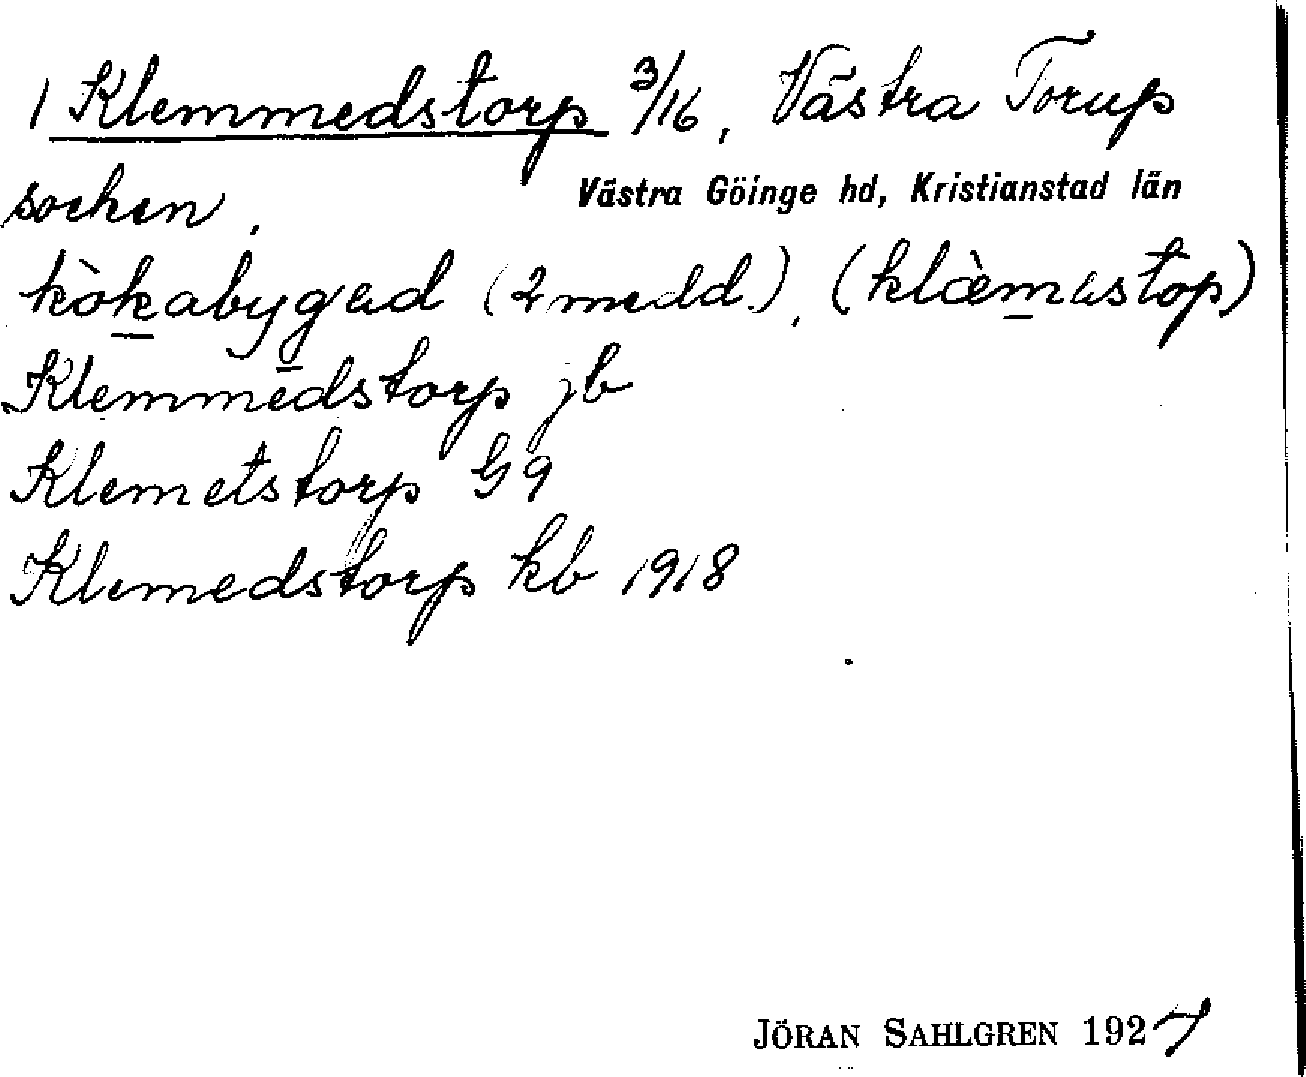 1 Klemmedstorp 3/16, Västra Torup
socken,
Västra Göinge hd, Kristianstad län
kòkabygəd (2 medd.), (klæ̀məstop)
Klemmedstorp jb
Klemetstorp G9
Klemedstorp kb 1918
JÖRAN SAHLGREN 1927